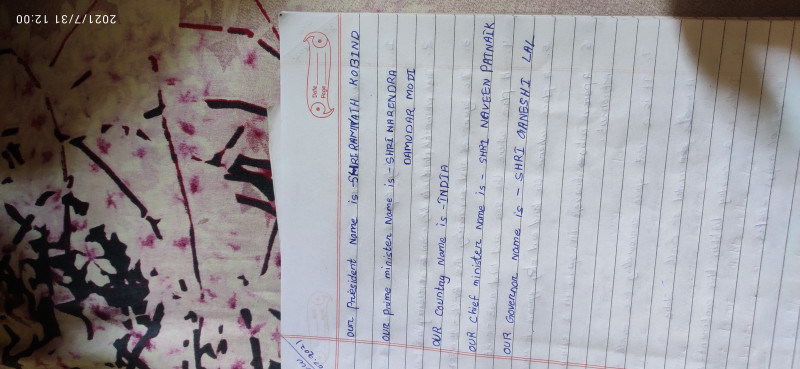 2021/7/31 12:00
Date
Page
Our President Name is - SHRI RAMNATH KOBIND
OUR prime minister Name is - SHRI NARENDRA
DAMODAR MODI
OUR Country Name is - INDIA
OUR Chief minister name is - SHRI NAVEEN PATNAIK
OUR Governor name is - SHRI GANESHI LAL